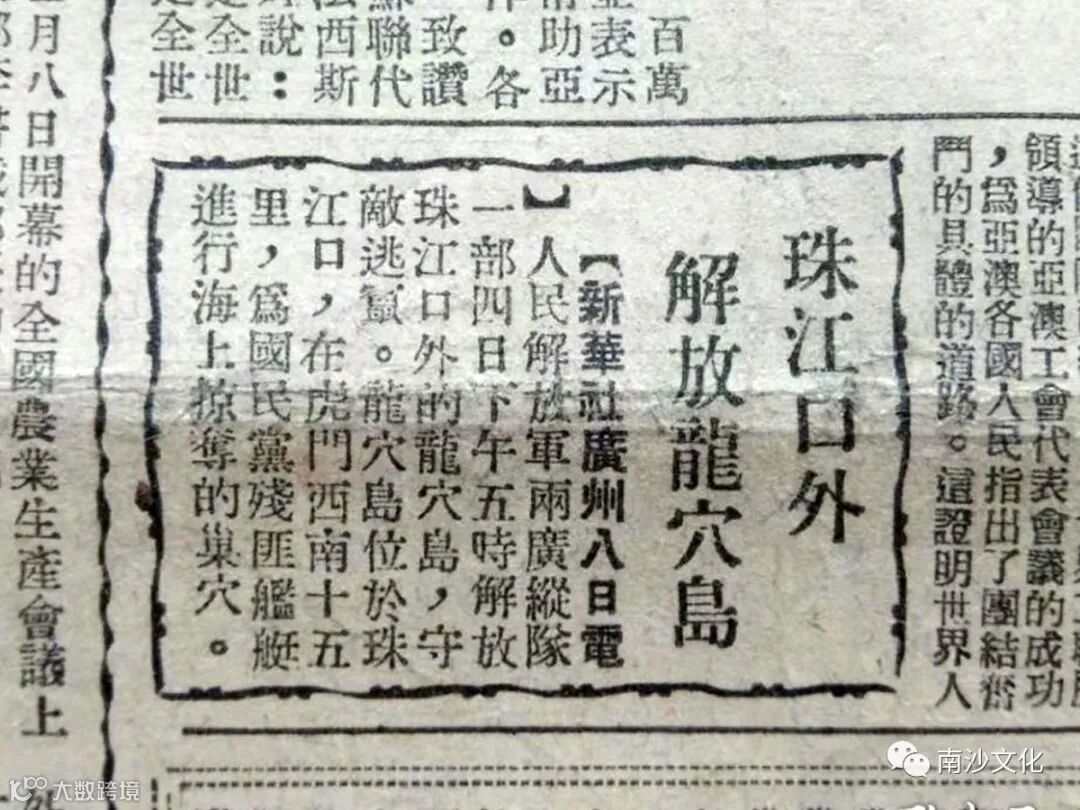 百萬
表示
助亞
。各
致讚
聯代
西斯
說：
全世
全世
領導的亞澳工會代表會議的成功
，爲亞澳各國人民指出了團結奮
鬥的具體的道路。這證明世界人
珠江口外
解放龍穴島
【新華社廣州八日電
】人民解放軍兩廣縱隊
一部四日下午五時解放
珠江口外的龍穴島，守
敵逃竄。龍穴島位於珠
江口，在虎門西南十五
里，爲國民黨殘匪艦艇
進行海上掠奪的巢穴。
月八日開幕的全國農業生產會議上
南沙文化
大数跨境